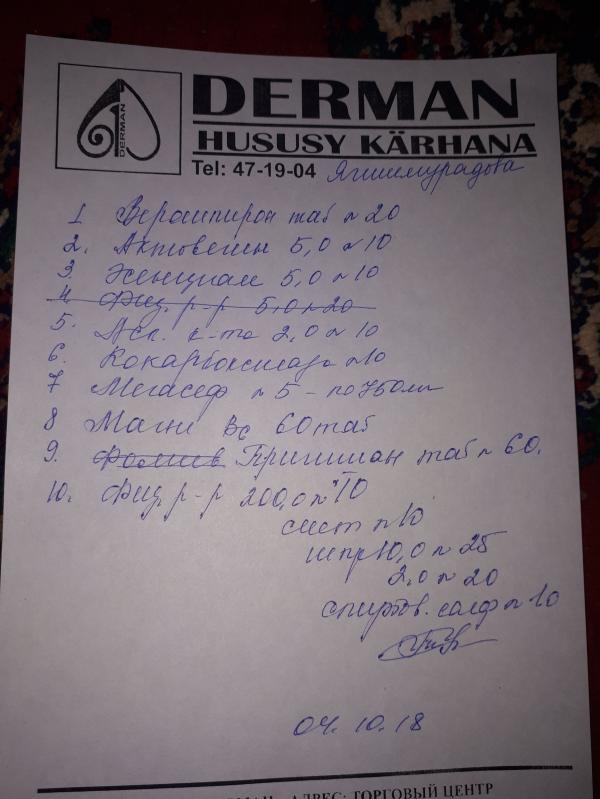 DERMAN
DERMAN
HUSUSY KÄRHANA
Tel: 47-19-04 Ягшимурадова
1 Верошпирон таб n 20
2. Актовегин 5,0 n 10
3. Эсенциале 5,0 n 10
4. Физ. р-р 5,0 n 20
5. Аск. к-та 2,0 n 10
6. Кокарбоксилаза n 10
7 Мегасеф n 5 -
8 Магне В6 60 таб
9. таб n 60.
10. Физ. р-р 200,0 n 10
сист n 10
шпр 10,0 n 25
2,0 n 20
спиртов. салф n 10
04.10.18
АДРЕС: ТОРГОВЫЙ ЦЕНТР